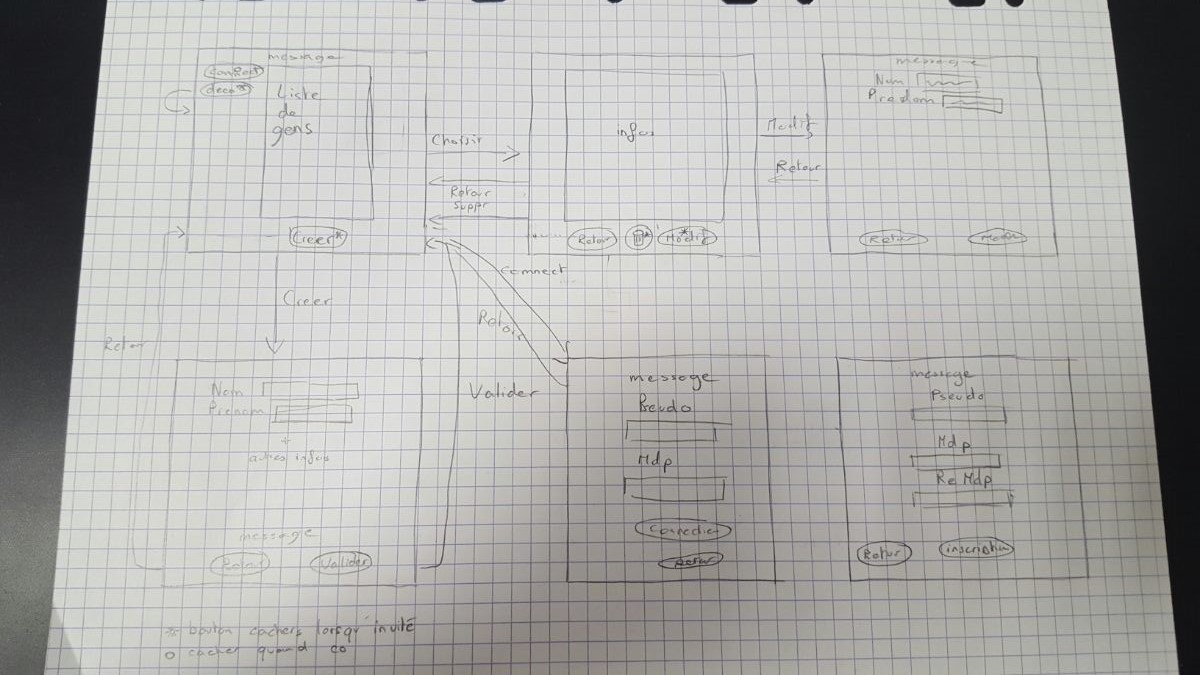 message
connect
deco*
Liste
de
gens
Creer*
Choisir
Retour
Suppr
infos
Retour
*
Modif
*
Modif
Retour
message
Nom
Prenom
Retour
Creer
Retour
connect
Retour
Valider
Nom
Prenom
+
autres infos
message
Retour
Valider
message
Pseudo
Mdp
Connection
Retour
message
Pseudo
Mdp
Re Mdp
Retour
inscription
* bouton cachers lorsqu'invité
o cacher quand co